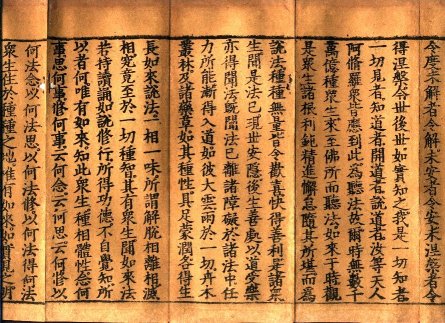 令度未解者令解未安者令安未涅槃者令
得涅槃今世後世如實知之我是一切知者
一切見者知道者開道者說道者汝等天人
阿修羅衆皆應到此為聽法故爾時無數千
萬億種衆生來至佛所而聽法如來于時觀
是衆生諸根利鈍精進懈怠隨其所堪而為
說法種種無量皆令歡喜快得善利是諸衆
生聞是法已現世安隱後生善處以道受樂
亦得聞法既聞法已離諸障礙於諸法中任
力所能漸得入道如彼大雲雨於一切卉木
叢林及諸藥草如其種性具足蒙潤各得生
長如來說法一相一味所謂解脫相離相滅
相究竟至於一切種智其有衆生聞如來法
若持讀誦如說修行所得功德不自覺知所
以者何唯有如來知此衆生種相體性念何
事思何事修何事云何念云何思云何修以
何法念以何法思以何法修以何法得何法
衆生住於種種之地唯有如來如實見之明